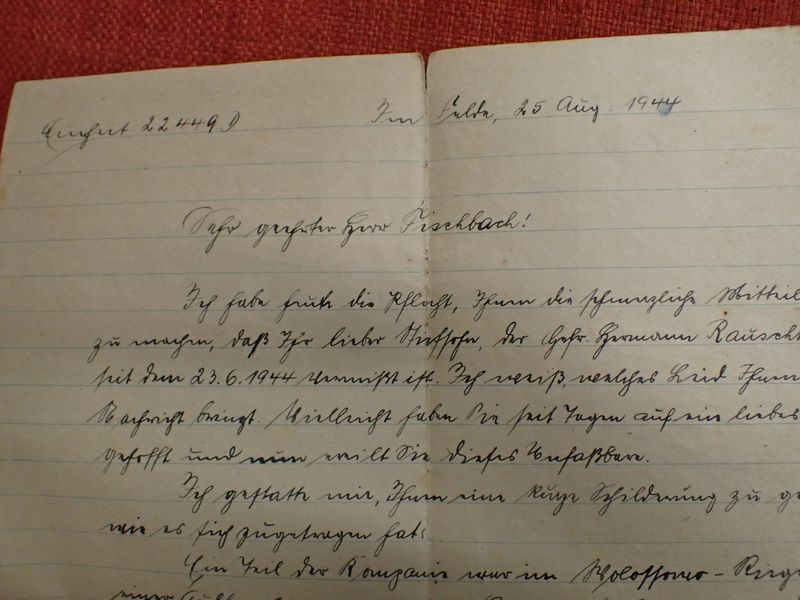 Einheit 22449 D
Im Felde, 25. Aug. 1944
Sehr geehrter Herr Fischbach!
Ich habe heute die Pflicht, Ihnen die schmerzliche Mitteil
zu machen, daß Ihr lieber Stiefsohn, der Gefr. Hermann Rauscht
seit dem 23.6.1944 vermißt ist. Ich weiß, welches Leid Ihnen
Nachricht bringt. Vielleicht haben Sie seit Tagen auf ein liebes
gehofft und nun ereilt Sie dieses Unfaßbare.
Ich gestatte mir, Ihnen eine kurze Schilderung zu ge
wie es sich zugetragen hat:
Ein Teil der Kompanie war im Wolossowo-
einer